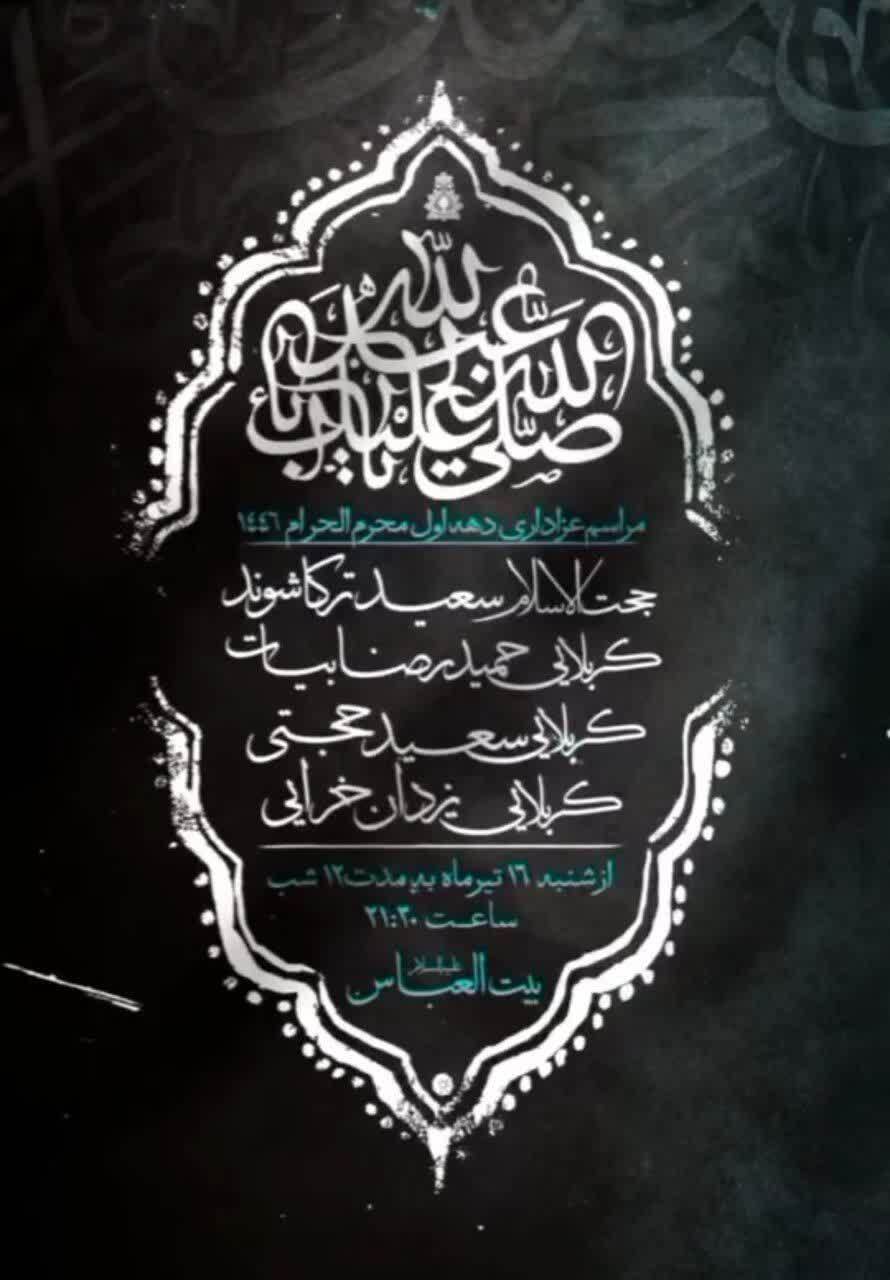 صلی الله علیک یا اباعبدالله
مراسم عزاداری دهه اول محرم الحرام ١٤٤٦
حجت الاسلام سعید ترکاشوند
کربلایی حمیدرضا بیات
کربلایی سعید حجتی
کربلایی یزدان خزایی
از شنبه ١٦ تیرماه به مدت ١٢ شب
ساعت ٢١:٣٠
بیت العباس علیه السلام